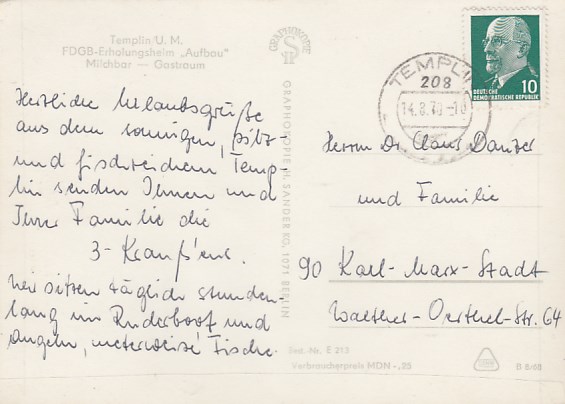 Templin/U. M.
FDGB-Erholungsheim „Aufbau"
Milchbar — Gastraum
Herzliche Urlaubsgrüße
aus dem sonnigen, pilz-
und fischreichem Temp-
lin senden Ihnen und
Ihrer Familie die
3-Krauß'ens.
Wir sitzen täglich stunden-
lang im Ruderboot und
angeln, meterweise Fische.
GRAPHOKOPIE
GRAPHOKOPIE H. SANDER KG, 1071 BERLIN
TEMPLIN
208
14.8.70-10
DEUTSCHE
DEMOKRATISCHE REPUBLIK
10
Herrn Dr. Claus Danzer
und Familie
90 Karl-Marx-Stadt
Walther-Oerthel-Str. 64
Best.-Nr. E 213
Verbraucherpreis MDN -,25
B 8/68